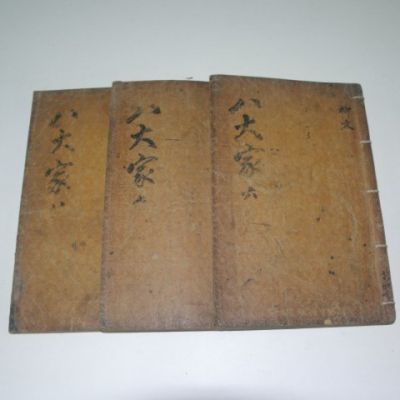 八大家 六
柳文
八大家 七
八大家 八